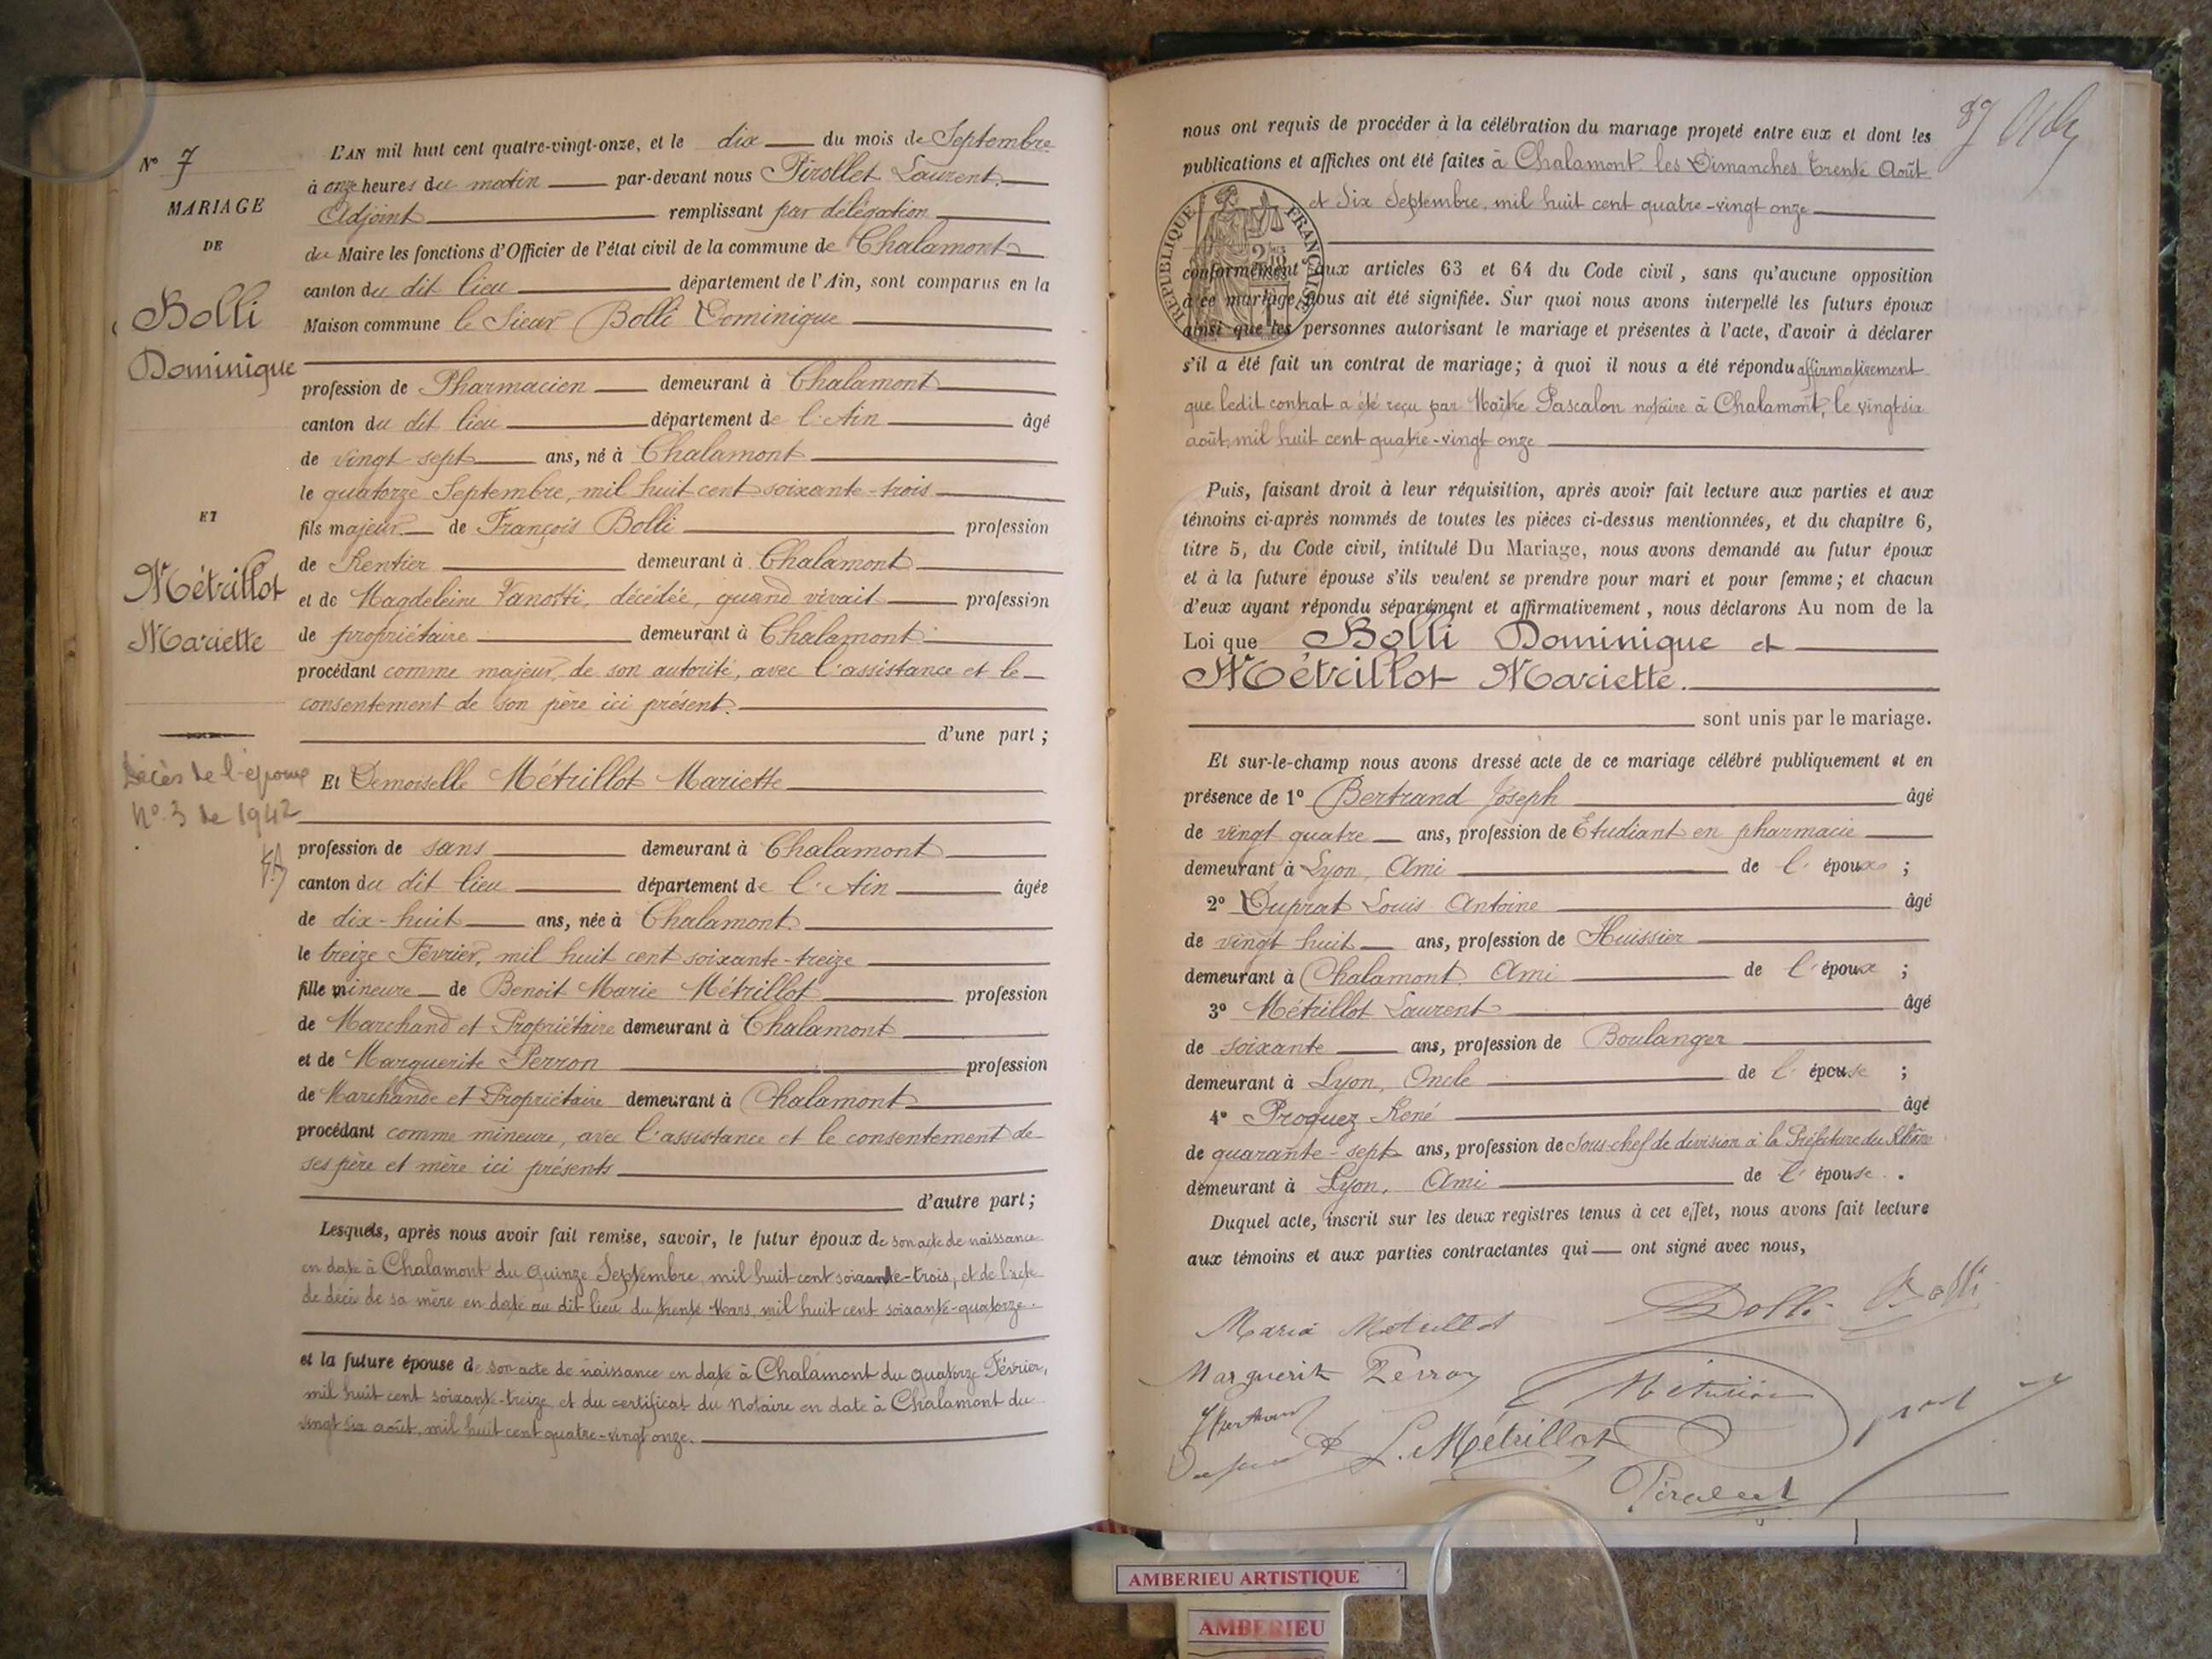 N° 7
MARIAGE
DE
Bolli
Dominique
ET
Métrillot
Mariette
Décès de l'épouse
N° 3 de 1942
L'AN mil huit cent quatre-vingt-onze, et le dix du mois de Septembre
à onze heures du matin par-devant nous Pirollet Laurent
Adjoint remplissant par délégation
du Maire les fonctions d'Officier de l'état civil de la commune de Chalamont
canton du dit lieu département de l'Ain, sont comparus en la
Maison commune le Sieur Bolli Dominique
profession de Pharmacien demeurant à Chalamont
canton du dit lieu département de l'Ain âgé
de vingt sept ans, né à Chalamont
le quatorze Septembre, mil huit cent soixante-trois
fils majeur de François Bolli profession
de Rentier demeurant à Chalamont
et de Magdeleine Vanotti, décédée, quand vivait profession
de propriétaire demeurant à Chalamont
procédant comme majeur, de son autorité, avec l'assistance et le
consentement de son père ici présent.
d'une part ;
Et Demoiselle Métrillot Mariette
profession de sans demeurant à Chalamont
canton du dit lieu département de l'Ain âgée
de dix-huit ans, née à Chalamont
le treize Février, mil huit cent soixante-treize
fille mineure de Benoit Marie Métrillot profession
de Marchand et Propriétaire demeurant à Chalamont
et de Marguerite Perron profession
de Marchande et Propriétaire demeurant à Chalamont
procédant comme mineure, avec l'assistance et le consentement de
ses père et mère ici présents
d'autre part ;
Lesquels, après nous avoir fait remise, savoir, le futur époux de son acte de naissance
en date à Chalamont du quinze Septembre, mil huit cent soixante-trois, et de l'acte
de décès de sa mère en date au dit lieu du trente Mars, mil huit cent soixante-quatorze.
et la future épouse de son acte de naissance en date à Chalamont du quatorze Février,
mil huit cent soixante-treize, et du certificat du Notaire en date à Chalamont du
vingt six août, mil huit cent quatre-vingt onze.
nous ont requis de procéder à la célébration du mariage projeté entre eux et dont les
publications et affiches ont été faites à Chalamont les Dimanches trente Août
et Six Septembre, mil huit cent quatre-vingt onze
REPUBLIQUE FRANÇAISE
conformément aux articles 63 et 64 du Code civil, sans qu'aucune opposition
à ce mariage nous ait été signifiée. Sur quoi nous avons interpellé les futurs époux
ainsi que les personnes autorisant le mariage et présentes à l'acte, d'avoir à déclarer
s'il a été fait un contrat de mariage; à quoi il nous a été répondu affirmativement
que ledit contrat a été reçu par Maître Pascalon notaire à Chalamont, le vingt six
août, mil huit cent quatre-vingt onze
Puis, faisant droit à leur réquisition, après avoir fait lecture aux parties et aux
témoins ci-après nommés de toutes les pièces ci-dessus mentionnées, et du chapitre 6,
titre 5, du Code civil, intitulé Du Mariage, nous avons demandé au futur époux
et à la future épouse s'ils veulent se prendre pour mari et pour femme ; et chacun
d'eux ayant répondu séparément et affirmativement, nous déclarons Au nom de la
Loi que Bolli Dominique et
Métrillot Mariette.
sont unis par le mariage.
Et sur-le-champ nous avons dressé acte de ce mariage célébré publiquement et en
présence de 1° Bertrand Joseph âgé
de vingt quatre ans, profession de Etudiant en pharmacie
demeurant à Lyon, Ami de l'époux ;
2° Duprat Louis Antoine âgé
de vingt huit ans, profession de Huissier
demeurant à Chalamont. Ami de l'époux ;
3° Métrillot Laurent âgé
de soixante ans, profession de Boulanger
demeurant à Lyon, Oncle de l'épouse ;
4° Proquez René âgé
de quarante-sept ans, profession de Sous-chef de division à la Préfecture du Rhône
demeurant à Lyon, Ami de l'épouse.
Duquel acte, inscrit sur les deux registres tenus à cet effet, nous avons fait lecture
aux témoins et aux parties contractantes qui ont signé avec nous,
Maria Metrillot
Bolli
Bolli
Marguerite Perron
L. Métrillot
AMBERIEU ARTISTIQUE
AMBERIEU